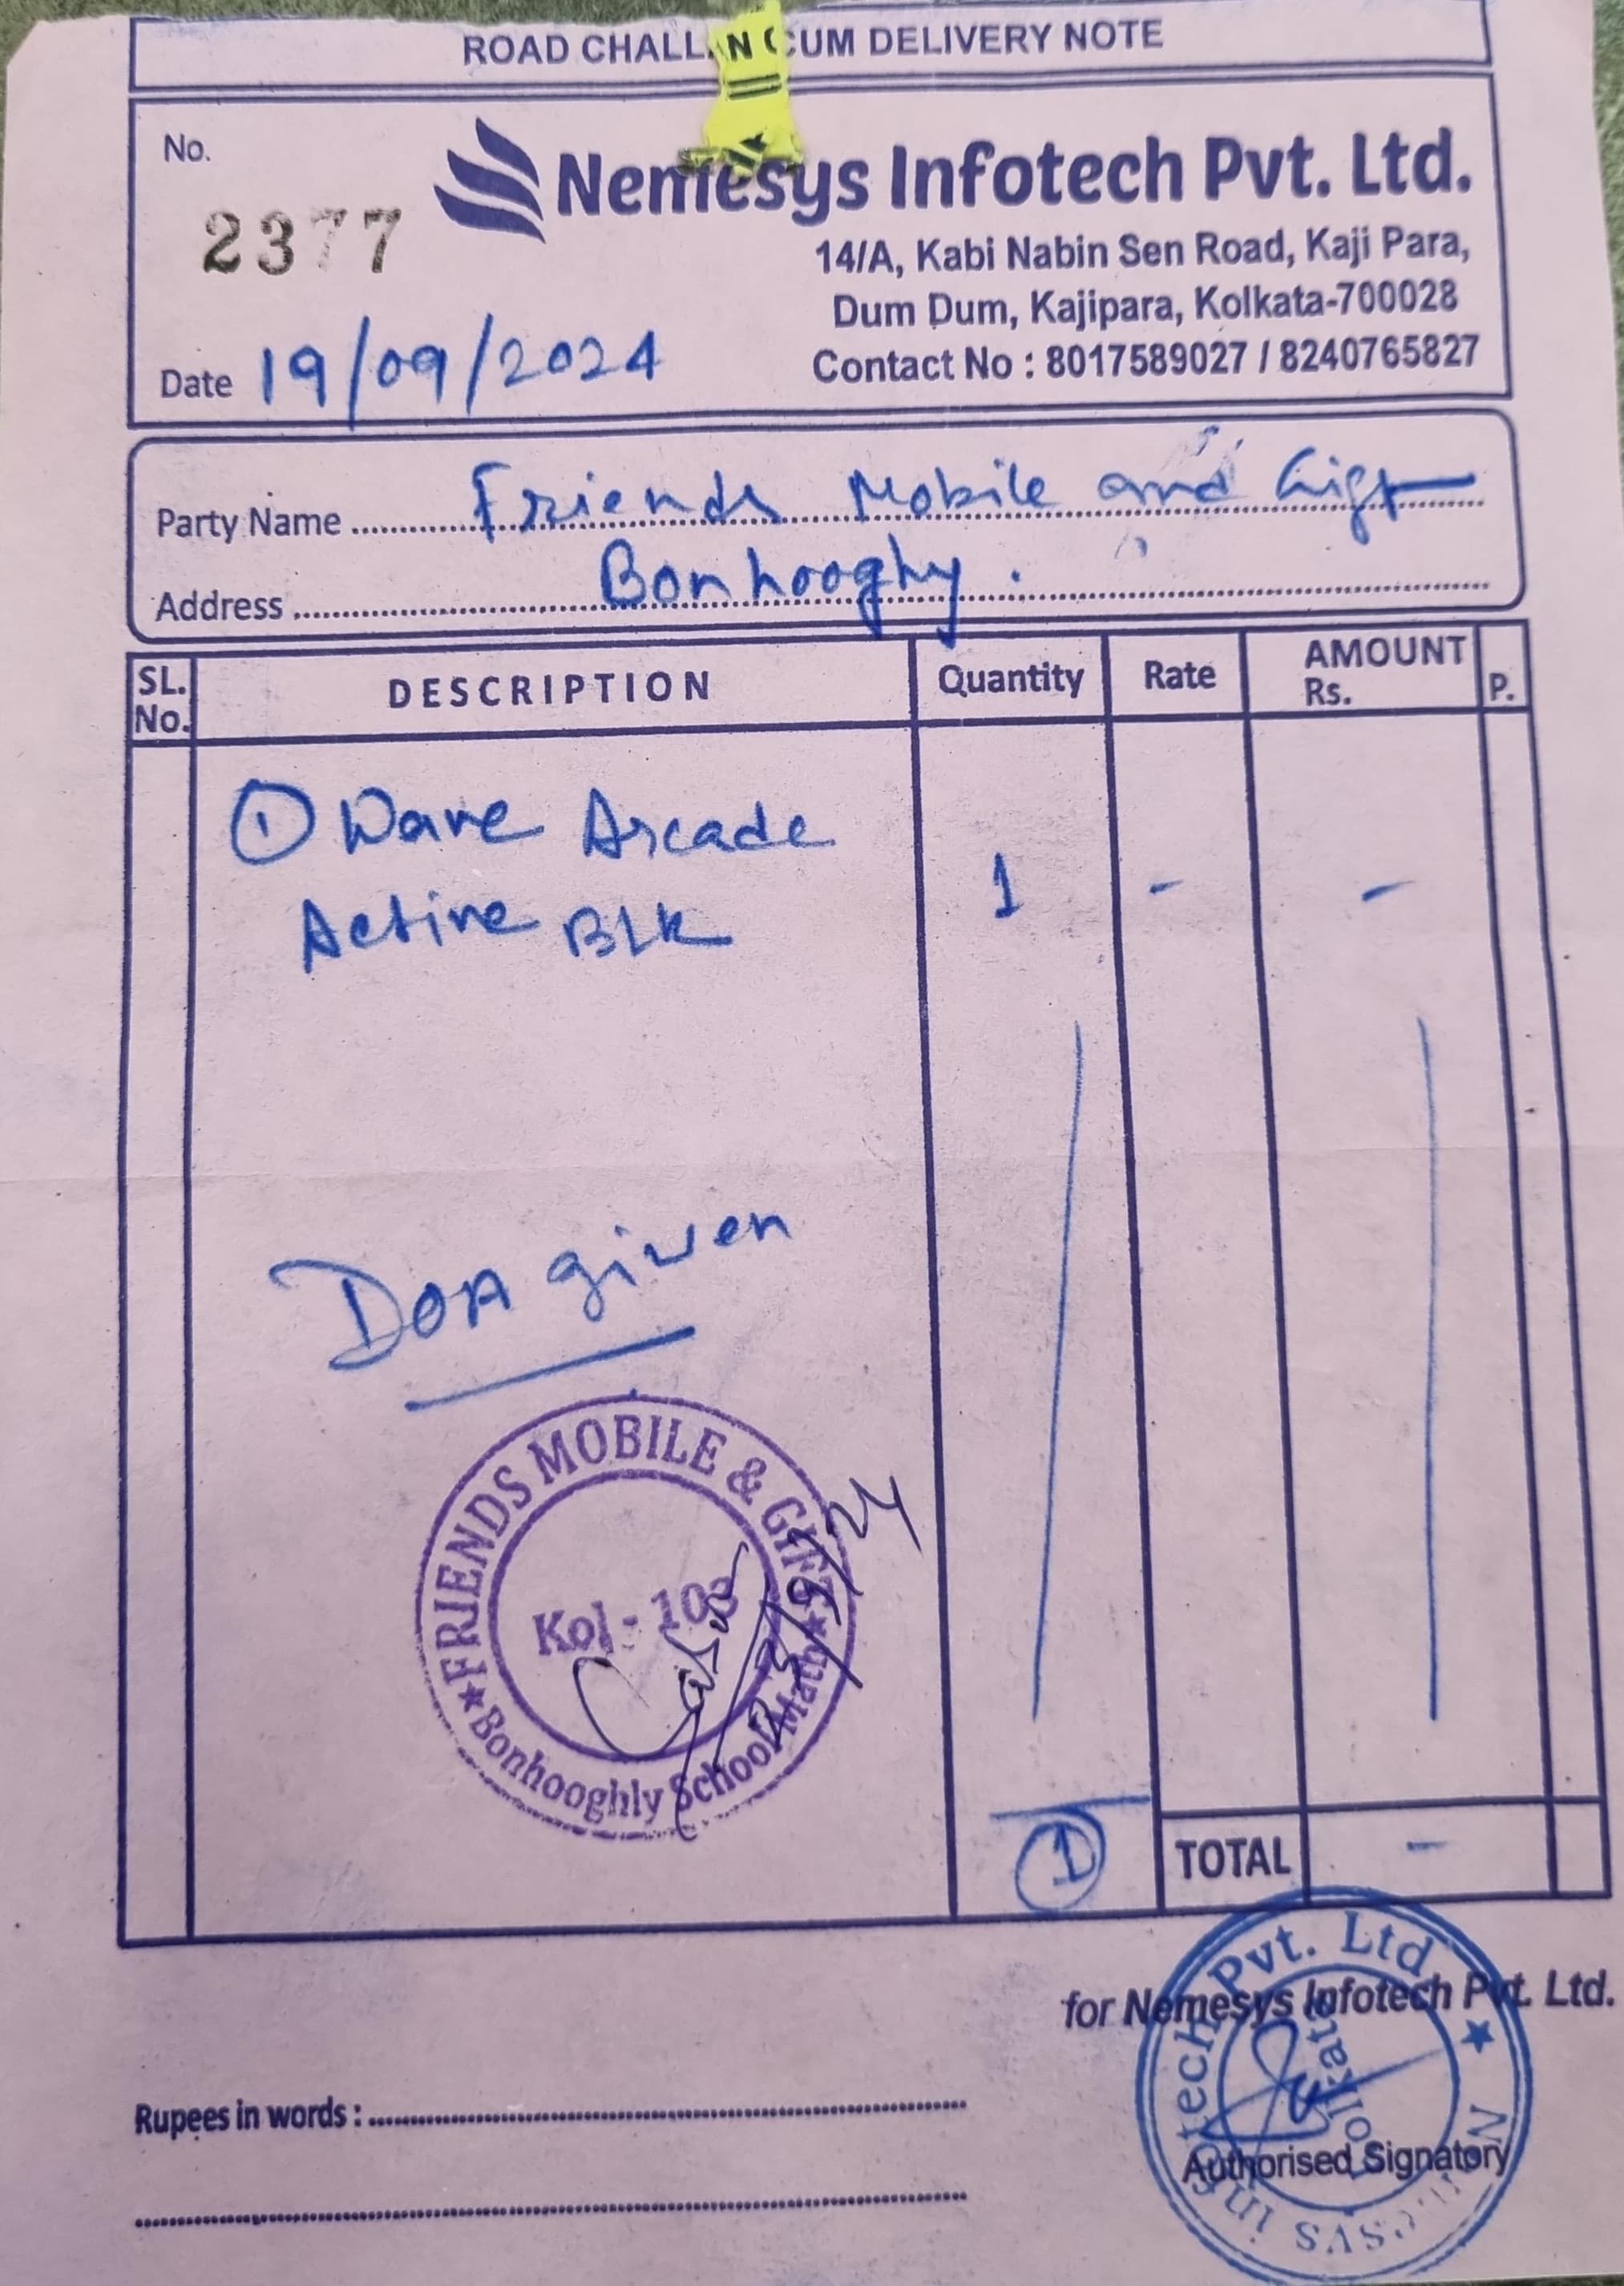 ROAD CHALLAN CUM DELIVERY NOTE
No.
2377
Nemesys Infotech Pvt. Ltd.
14/A, Kabi Nabin Sen Road, Kaji Para,
Dum Dum, Kajipara, Kolkata-700028
Contact No : 8017589027 / 8240765827
Date 19/09/2024
Party Name Friends Mobile and Gift
Address Bonhooghy.
SL. No. DESCRIPTION Quantity Rate AMOUNT Rs. P.
① Wave Arcade
Active BLK 1 - -
DOA given
FRIENDS MOBILE & GIFT
Kol - 108
★ Bonhooghly School Math ★
① TOTAL -
for Nemesys Infotech Pvt. Ltd.
Nemesys Infotech Pvt. Ltd ★
Kolkata
Rupees in words :
Authorised Signatory